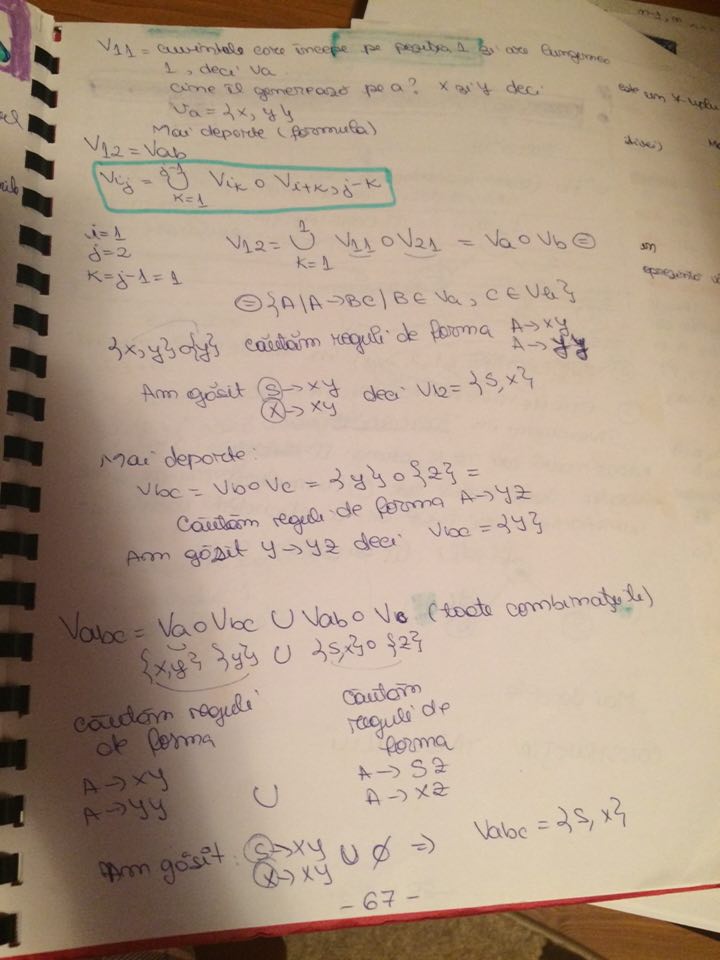 V11 = cuvintele care începe pe poziția 1 și are lungimea
1, deci Va
Cine îl generează pe a? x și y deci
Va = {x, y}
Mai departe (formula)
V12 = Vab
Vij = ∪ j-1 k=1 Vik ∘ Vi+k, j-k
i=1
j=2
k=j-1=1
V12 = ∪ 1 k=1 V11 ∘ V21 = Va ∘ Vb =
= {A | A → BC | B ∈ Va, C ∈ Vb}
{x, y} ∘ {y} căutăm reguli de forma A → xy
A → yy
Am găsit S → xy deci V12 = {S, x}
X → xy
Mai departe:
Vbc = Vb ∘ Vc = {y} ∘ {z} =
căutăm reguli de forma A → yz
Am găsit y → yz deci Vbc = {y}
Vabc = Va ∘ Vbc ∪ Vab ∘ Vc (toate combinațiile)
{x, y} {y} ∪ {S, x} ∘ {z}
căutăm reguli
de forma
A → xy
A → yy
∪
căutăm
reguli de
forma
A → SZ
A → XZ
Am găsit: S → xy ∪ ∅ => Vabc = {S, x}
X → xy
- 67 -
n-1, n
este un
un